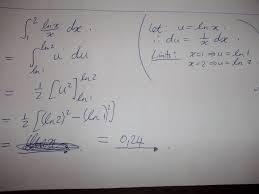 ∫₁² lnx/x dx.
= ∫_{ln1}^{ln2} u du
= 1/2 [u²]_{ln1}^{ln2}
= 1/2 [(ln2)² − (ln1)²]
= = 0,24 .
Let: u = lnx.
∴ du = 1/x dx.
Limits: x=1 ⇒ u = ln1
x=2 ⇒ u = ln2